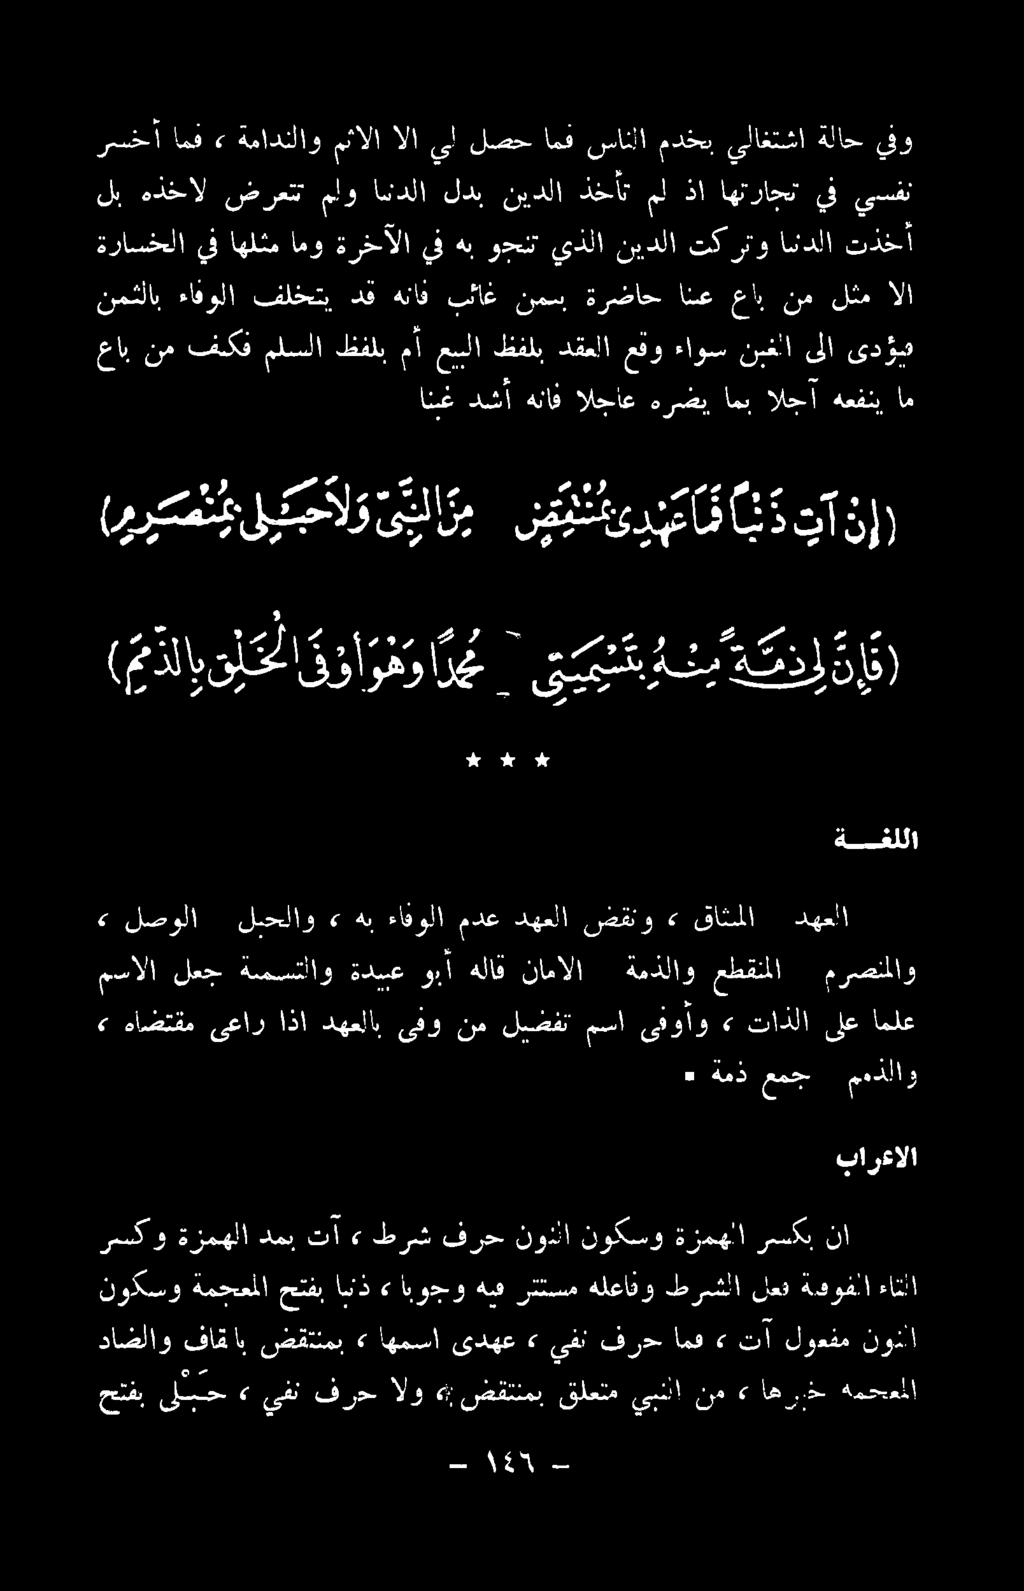 وفي حالة اشتغالي بخدم الناس فما حصل لي الا الاثم والندامة ، فما أخسر
نفسي في تجارتها اذ لم تأخذ الدين بدل الدنيا ولم تتعرض لاخذه بل
أخذت الدنيا وتركت الدين الذي تنجو به في الآخرة وما مثلها في الخسارة
الا مثل من باع عينا حاضرة بثمن غائب فانه قد يتخلف الوفاء بالثمن
فيؤدى الى الغبن سواء وقع العقد بلفظ البيع أم بلفظ السلم فكيف من باع
ما ينفعه آجلا بما يضره عاجلا فانه أشد غبنا
(إِنْ آتِ ذَنْبًا فَمَا عَهْدِى بِمُنْتَقِضٍ مِنَ النَّبِيِّ وَلَا حَبْلِي بِمُنْصَرِمِ)
(فَإِنَّ لِي ذِمَّةً مِنْهُ بِتَسْمِيَتِي مُحَمَّدًا وَهُوَ أَوْفَى الْخَلْقِ بِالذِّمَمِ)
★ ★ ★
اللغـــة
العهد الميثاق ، ونقض العهد عدم الوفاء به ، والحبل الوصل ،
والمنصرم المنقطع والذمة الامان قاله أبو عبيدة والتسمية جعل الاسم
علما على الذات ، وأوفى اسم تفضيل من وفى بالعهد اذا راعى مقتضاه ،
والذمم جمع ذمة .
الاعراب
ان بكسر الهمزة وسكون النون حرف شرط ، آت بمد الهمزة وكسر
التاء الفوقية فعل الشرط وفاعله مستتر فيه وجوبا ، ذنبا بفتح المعجمة وسكون
النون مفعول آت ، فما حرف نفي ، عهدى اسمها ، بمنتقض بالقاف والضاد
المعجمة خبرها ، من النبي متعلق بمنتقض ، ولا حرف نفي ، حَبْلى بفتح
– ١٤٦ –